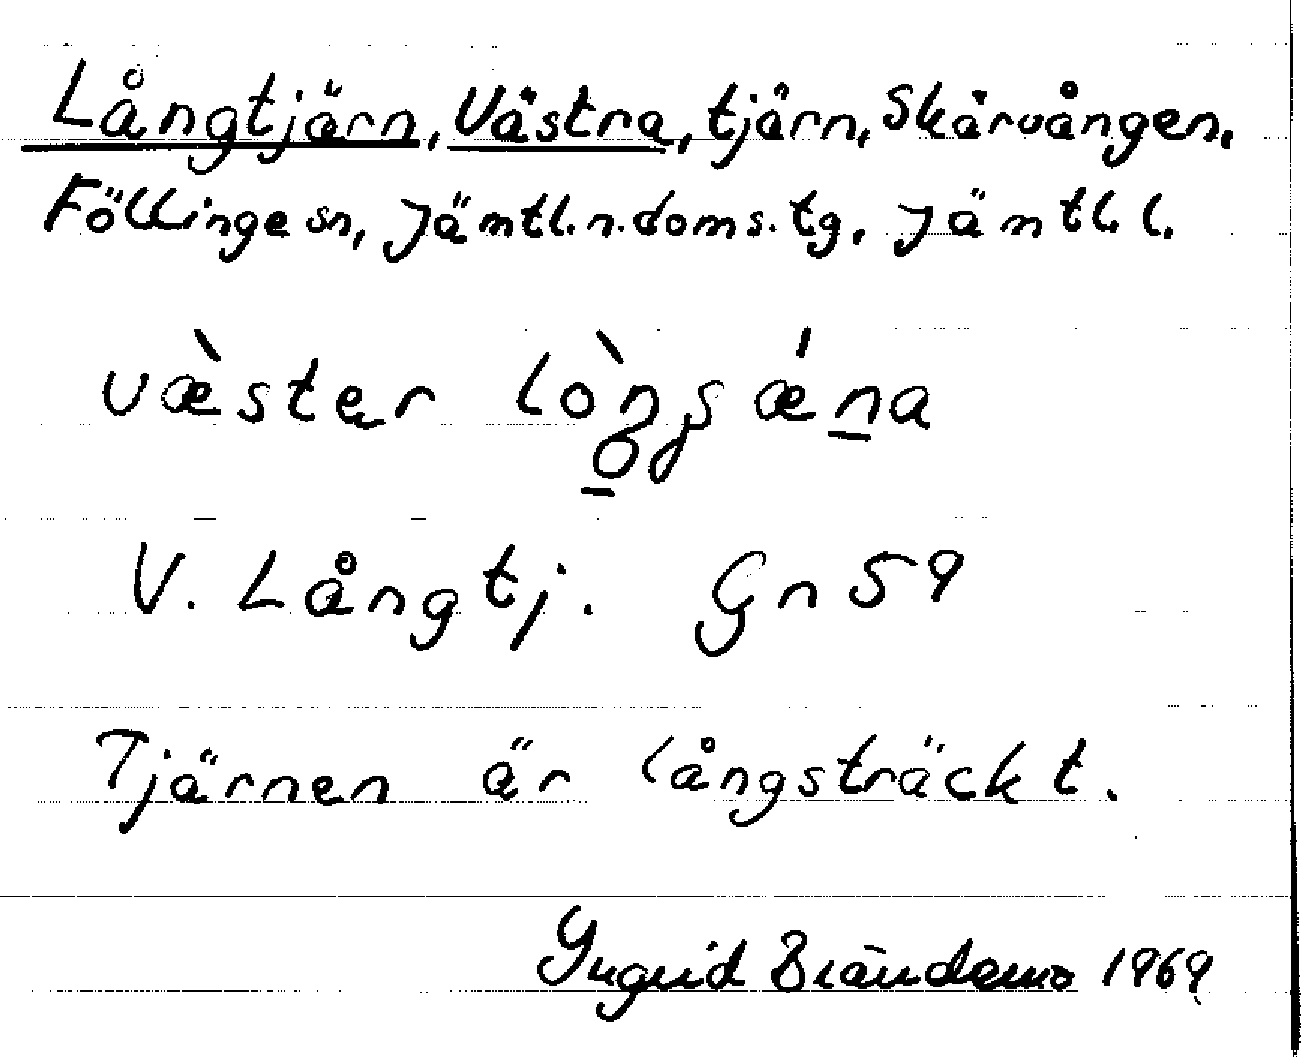 Långtjärn, Västra, tjärn, Skärvången,
Föllinge sn, Jämtl. n. doms. tg, Jämtl. l.
væ̀ster lòŋʂǽn̠a
V. Långtj. Gn 59
Tjärnen är långsträckt.
Ingrid Brändemo 1969